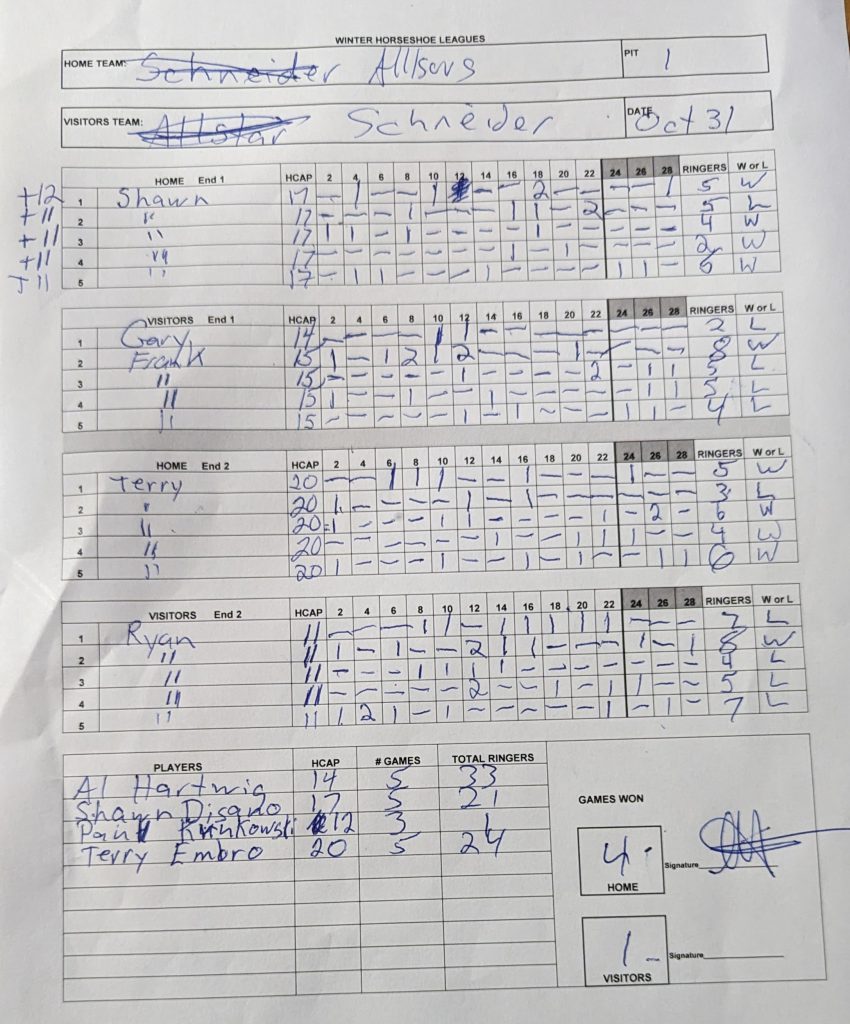 WINTER HORSESHOE LEAGUES
HOME TEAM: Schneider Allsars PIT 1
VISITORS TEAM: Allstar Schneider DATE Oct 31
HOME End 1 HCAP 2 4 6 8 10 12 14 16 18 20 22 24 26 28 RINGERS W or L
+12 1 Shawn 17 – 1 – – 1 – – 2 – – – – 1 5 W
+11 2 " 17 – – – 1 – – – 1 1 – 2 – – – 5 L
+11 3 " 17 1 1 – 1 – – – – – – – – – – 4 W
+11 4 " 17 – – – – – – – 1 – 1 – – – – 2 W
+11 5 " 17 – 1 1 – – – 1 – – – – 1 1 – 6 W
VISITORS End 1 HCAP 2 4 6 8 10 12 14 16 18 20 22 24 26 28 RINGERS W or L
1 Gary 14 – – – – 1 1 – – – – – – – – 2 L
2 Frank 15 1 – 1 2 1 2 – – – 1 – – – – 8 W
3 " 15 – – – – – 1 – – – – 2 – 1 1 5 L
4 " 15 1 – – 1 – – 1 – – – – – 1 1 5 L
5 " 15 – – – – – 1 – 1 – – – 1 1 – 4 L
HOME End 2 HCAP 2 4 6 8 10 12 14 16 18 20 22 24 26 28 RINGERS W or L
1 Terry 20 – – 1 1 1 – – 1 – – – 1 – – 5 W
2 " 20 1 – – – – 1 – 1 – – – – – – 3 L
3 " 20 1 – – – 1 1 – – – – 1 – 2 – 6 W
4 " 20 – – – – – – 1 – – 1 1 1 – – 4 W
5 " 20 1 – – – 1 – – 1 – 1 – – 1 1 6 W
VISITORS End 2 HCAP 2 4 6 8 10 12 14 16 18 20 22 24 26 28 RINGERS W or L
1 Ryan 11 – – – 1 1 – 1 1 1 1 1 – – – 7 L
2 " 11 1 – 1 – – 2 1 1 – – – 1 – 1 8 W
3 " 11 – – – 1 1 1 1 – – – – – – – 4 L
4 " 11 – – – – – 2 – – 1 – 1 1 – – 5 L
5 " 11 1 2 1 – 1 – – – – – 1 – 1 – 7 L
PLAYERS HCAP # GAMES TOTAL RINGERS
Al Hartwig 14 5 33
Shawn Disano 17 5 21
Paul Kunkowski 12 3 1
Terry Embro 20 5 24
GAMES WON
4 HOME Signature
1 VISITORS Signature